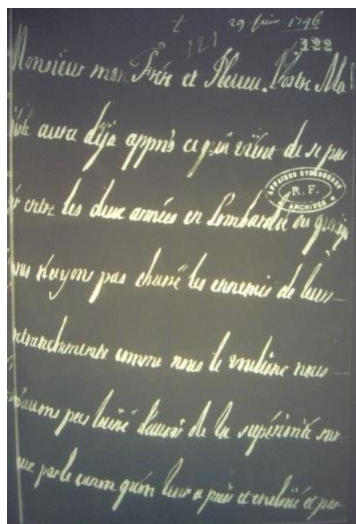 29 Juin 1796
121
122
Monsieur mon Frère et Neveu. Vostre Ma
jesté aura déja appris ce qui vient de se pas
entre les deux armées en Lombardie ou quoiq
nous n'ayons pas chassé les ennemis de leurs
retranchements comme nous le voulions nous
pas laissé d'avoir de la supériorité sur
eux par le canon qu'on leur a pris et encloüé et par
AFFAIRES ETRANGERES
R. F.
ARCHIVES